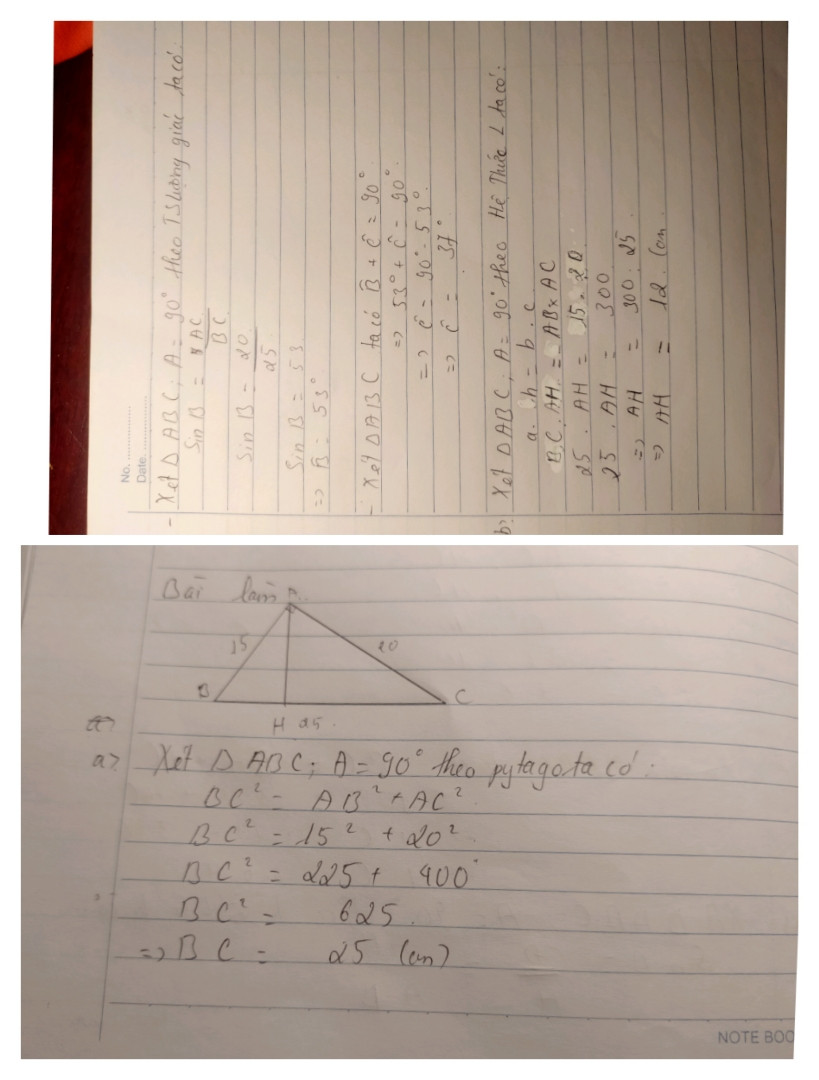 No. ................
Date ................
- Xét Δ ABC; A = 90° theo TSlượng giác ta có:
Sin B = AC/BC
Sin B = 20/25
Sin B = 53
=> B̂ = 53°
- Xét Δ ABC ta có B̂ + Ĉ = 90°.
=> 53° + Ĉ = 90°.
=> Ĉ = 90° - 53°.
=> Ĉ = 37°
b> Xét Δ ABC; A = 90° theo Hệ Thức L ta có:
a. h = b. c
BC. AH = AB x AC
25 . AH = 15 . 20.
25 . AH = 300
=> AH = 300 : 25.
=> AH = 12 (cm.
Bài làm
A
15
20
B
C
H
25.
a>
a> Xét Δ ABC; A = 90° theo pytago ta có:
BC² = AB² + AC².
BC² = 15² + 20²
BC² = 225 + 400
BC² = 625.
=> BC = 25 (cm)
NOTE BOO